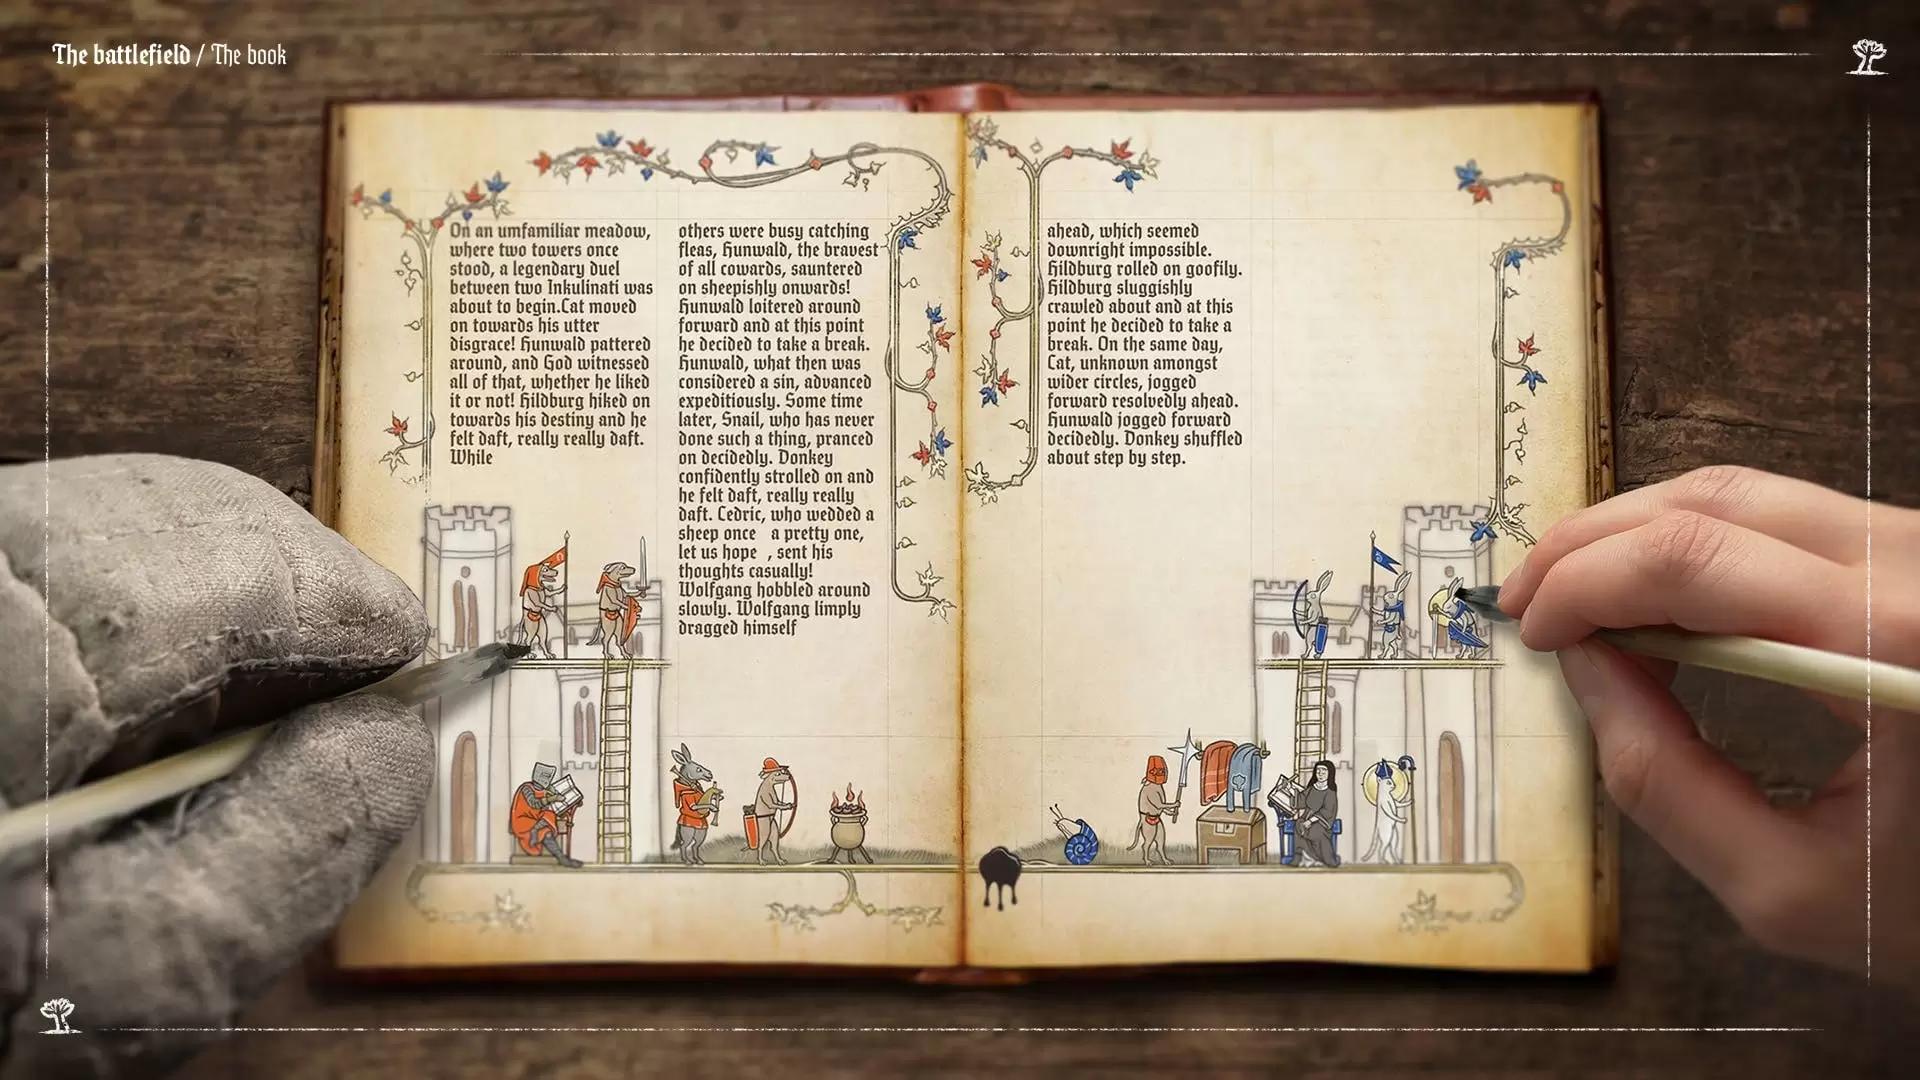 The battlefield / The book
On an umfamiliar meadow,
where two towers once
stood, a legendary duel
between two Inkulinati was
about to begin.Cat moved
on towards his utter
disgrace! Hunwald pattered
around, and God witnessed
all of that, whether he liked
it or not! Hildburg hiked on
towards his destiny and he
felt daft, really really daft.
While
others were busy catching
fleas, Hunwald, the bravest
of all cowards, sauntered
on sheepishly onwards!
Hunwald loitered around
forward and at this point
he decided to take a break.
Hunwald, what then was
considered a sin, advanced
expeditiously. Some time
later, Snail, who has never
done such a thing, pranced
on decidedly. Donkey
confidently strolled on and
he felt daft, really really
daft. Cedric, who wedded a
sheep once   a pretty one,
let us hope  , sent his
thoughts casually!
Wolfgang hobbled around
slowly. Wolfgang limply
dragged himself
ahead, which seemed
downright impossible.
Hildburg rolled on goofily.
Hildburg sluggishly
crawled about and at this
point he decided to take a
break. On the same day,
Cat, unknown amongst
wider circles, jogged
forward resolvedly ahead.
Hunwald jogged forward
decidedly. Donkey shuffled
about step by step.